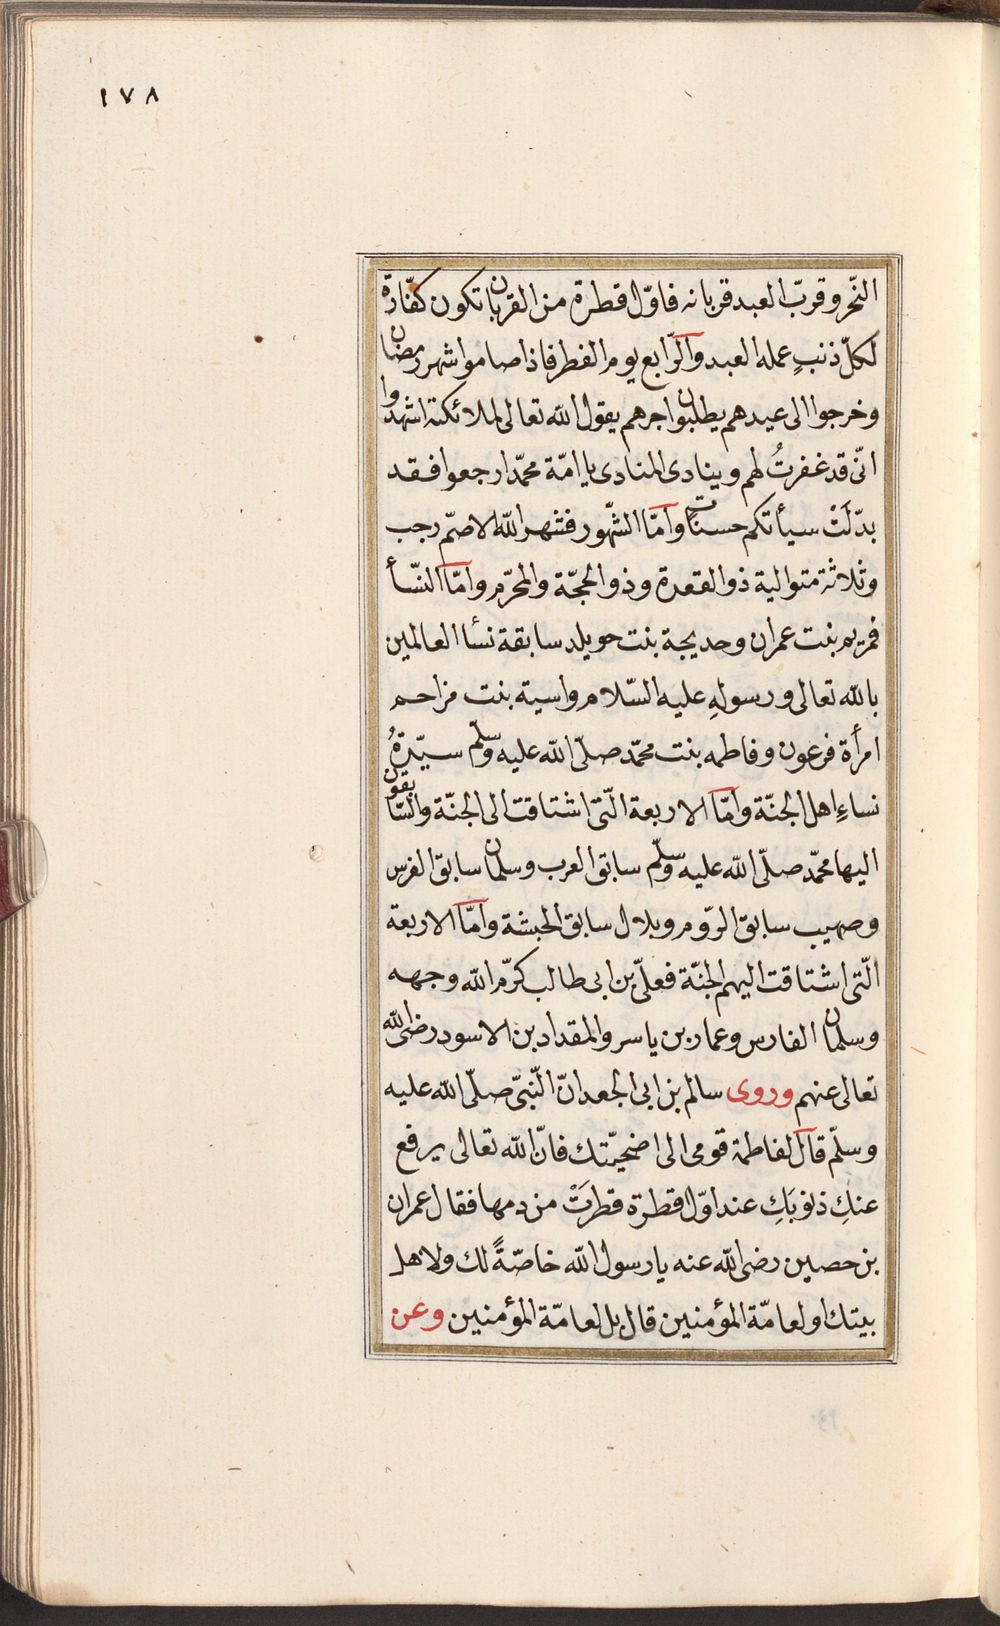 ١٧٨
النّحر وقرّب العبد قربانه فاوّل قطرة من القربان تكون كفّارة
لكلّ ذنبٍ عمله العبد والرّابع يوم الفطر فاذا صاموا شهر رمضان
وخرجوا الى عيدهم يطلبون اجرهم يقول الله تعالى لملائكته اشهدوا
انّى قد غفرتُ لهم وينادى المنادى يا امّة محمّد ارجعوا فقد
بدّلَتْ سيأتكم حسنات وامّا الشّهور فشهر الله الاصمّ رجب
وثلاثة متوالية ذو القعدة وذو الحجّة والمحرّم وامّا النّسأ
فمريم بنت عمران وخديجة بنت خويلد سابقة نسأ العالمين
بالله تعالى ورسولهِ عليه السّلام واسية بنت مزاحم
امرأة فرعون وفاطمه بنت محمّد صلّى الله عليه وسلّم سيّدةُ
نساءِ اهل الجنّة وامّا الاربعة الّتى اشتاقت الى الجنّة والسّابقون
اليها محمّد صلّى الله عليه وسلّم سابق العرب وسلمان سابق الفرس
وصهيب سابق الرّوم وبلال سابق الحبشة وامّا الاربعة
الّتى اشتاقت اليهم الجنّة فعلىّ بن ابى طالب كرّم الله وجهه
وسلمان الفارس وعمار بن ياسر والمقداد بن الاسود رضى الله
تعالى عنهم وروى سالم بن ابى الجعد انّ النّبىّ صلّى الله عليه
وسلّم قال لفاطمة قومى الى اضحيّتك فانّ الله تعالى يرفع
عنكِ ذنوبَكِ عند اوّل قطرة قطرَتْ من دمها فقال عمران
بن حصين رضى الله عنه يا رسول الله خاصّةً لك ولاهل
بيتك او لعامّة المؤمنين قال بل لعامّة المؤمنين وعن